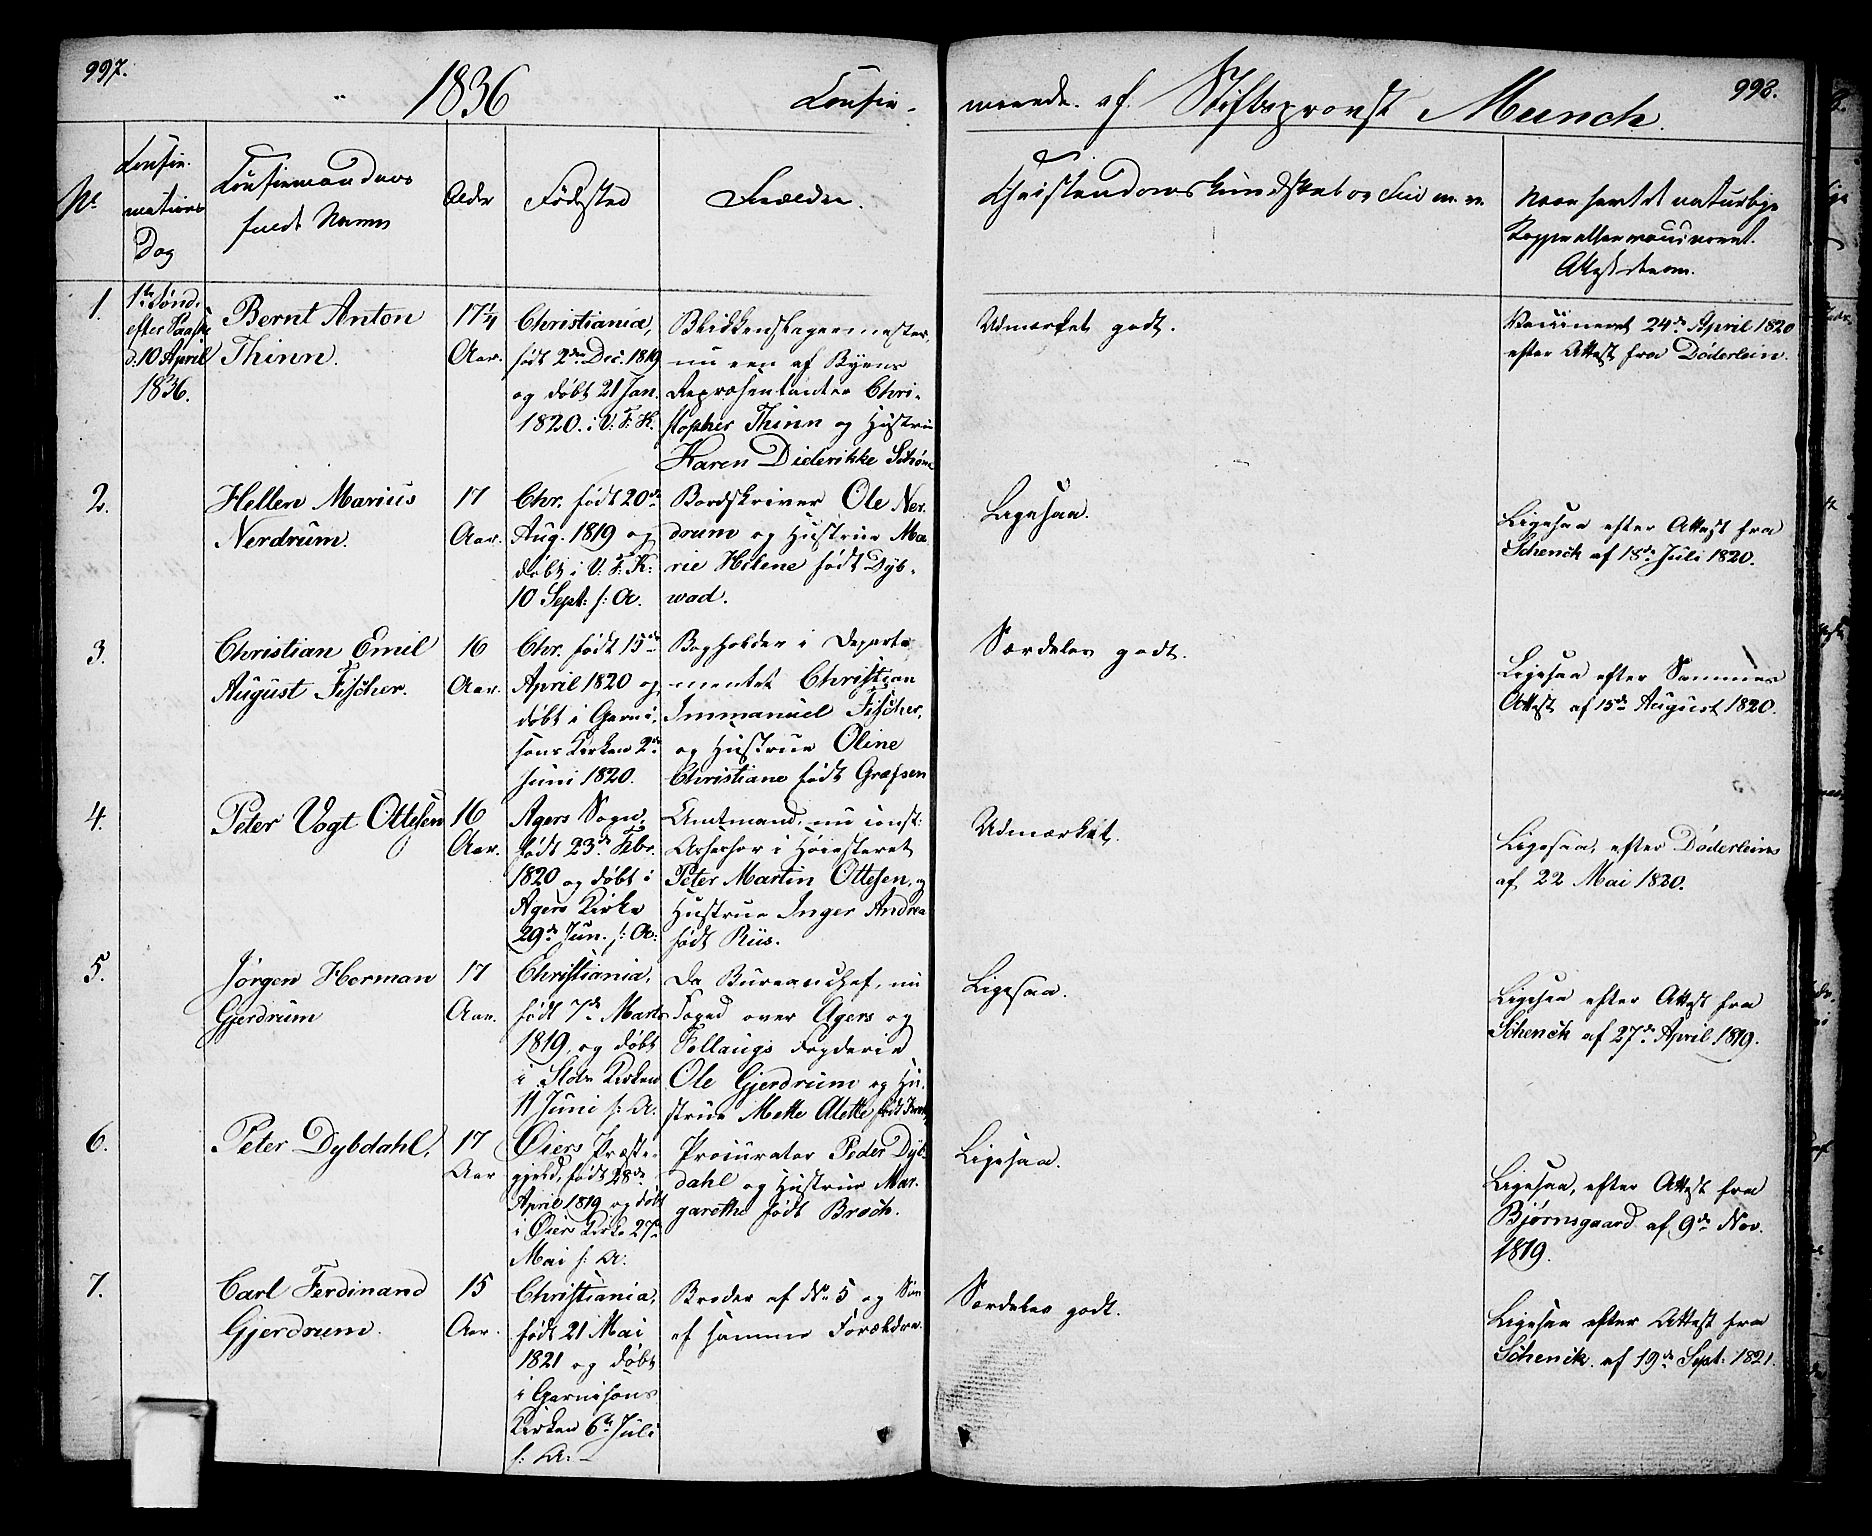 997.
1836
Confir-
merede af Stiftsprovst Munch.
998.
No.
Confir-
mations
Dag
Confirmandens
fulde Navn
Alder
Fødested
Forældre.
Christendomskundskab og Flid m. v.
Naar havt de naturlige
Kopper eller vaccineret.
Attest derom.
1.
1ste Sønd.
efter Paaske
d. 10 April
1836.
Bernt Anton
Thinn.
17 1/4
Aar.
Christiania,
født 2den Dec. 1819
og døbt 21 Jan.
1820. i V: F: K.
Blikkenslagermester,
nu een af Byens
Repræsentanter Chri-
stopher Thinn og Hustrue
Karen Diderikke Schøne
Udmærket godt.
Vaccineret 24de April 1820
efter Attest fra Døderlein.
2.
Hellen Marius
Nerdrum.
17
Aar.
Chr. født 20de
Aug. 1819 og
døbt i V: F: K:
10 Sept: s: A.
Bordskriver Ole Ner-
drum og Hustrue Ma-
rie Helene født Dyb-
wad.
Ligesaa.
Ligesaa efter Attest fra
Schenck af 18de Juli 1820.
3.
Christian Emil
August Fischer.
16
Aar.
Chr. født 15de
April 1820 og
døbt i Garni-
sons Kirken 2de
Juni 1820.
Bogholder i Departe-
mentet Christian
Immanuel Fischer,
og Hustrue Oline
Christiane født Græfsen
Særdeles godt.
Ligesaa efter Sammes
Attest af 15de August 1820.
4.
Peter Vogt Ottesen
16
Aar.
Agers Sogn,
født 23de Febr.
1820 og døbt i
Agers Kirke
29de Jun. s: A:
Amtmand, nu const:
Assessor i Høiesteret
Peter Martin Ottesen, og
Hustrue Inger Andrea
født Riis.
Udmærket.
Ligesaa, efter Døderleins
af 22 Mai 1820.
5.
Jørgen Herman
Gjerdrum
17
Aar.
Christiania,
født 7de Marts
1819, og døbt
i Slots Kirken
11 Juni s: A.
Da Bureauchef, nu
Foged over Agers og
Follaugs Fogderie
Ole Gjerdrum og Hu-
strue Mette Alette født
Ligesaa.
Ligesaa efter Attest fra
Schenck af 27de April 1819.
6.
Peter Dybdahl.
17
Aar
Øiers Præste-
gjeld, født 28de
April 1819 og døbt
i Øiers Kirke 27de
Mai s: A:
Procurator Peder Dyb-
dahl og Hustrue Mar-
garethe født Broch.
Ligesaa.
Ligesaa, efter Attest fra
Bjørnsgaard af 9de Nov.
1819.
7.
Carl Ferdinand
Gjerdrum.
15
Aar.
Christiania,
født 21 Mai
1821 og døbt
i Garnisons
Kirken 6te Juli
s: A:
Broder af No 5 og Søn
af samme Forældre.
Særdeles godt.
Ligesaa efter Attest fra
Schenck. af 19de Sept. 1821.